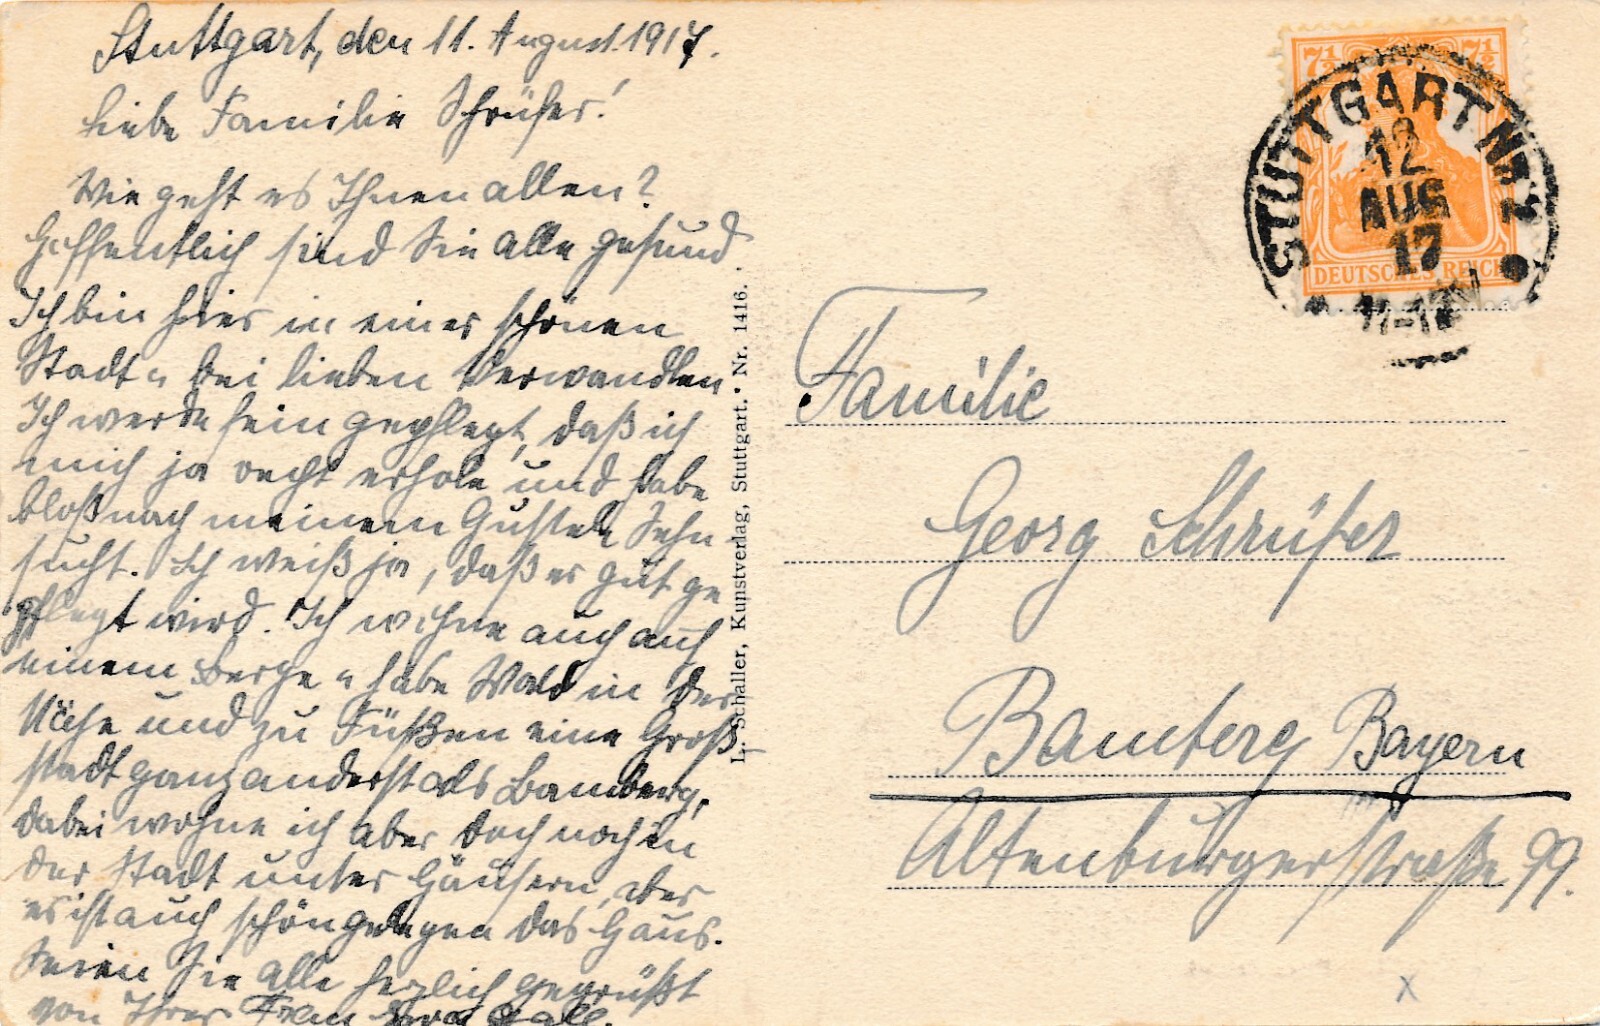 Stuttgart, den 11. August 1917.
Liebe Familie Schrüfer!
Wie geht es Ihnen allen?
Hoffentlich sind Sie alle gesund.
Ich bin hier in einer schönen
Stadt u. bei lieben Verwandten.
Ich werde fein gepflegt, daß ich
mich ja recht erhole und habe
bloß nach meinem Gustel Sehn-
sucht. Ich weiß ja, daß er gut ge
pflegt wird. Ich wohne auch auf
einem Berge u habe Wald in der
Nähe und zu Füßen eine Groß-
stadt ganz anderst als Bamberg,
dabei wohne ich aber doch noch in
der Stadt unter Häusern, aber
es ist auch schön gelegen das Haus.
Seien Sie alle herzlich gegrüßt
von Ihrer Frau
L. Schaller, Kunstverlag, Stuttgart. • Nr. 1416.
7½ 7½
DEUTSCHES REICH
STUTTGART Nr. 2
12
AUG
17
Familie
Georg Schrüfer
Bamberg Bayern
Altenburgerstraße 99.
x